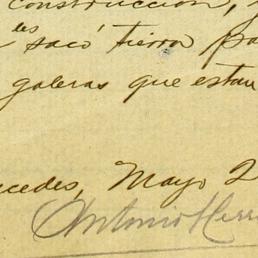 construcción,
les
sacó tierra pa
galeras que estan
cedes, Mayo 2
Antonio Herr